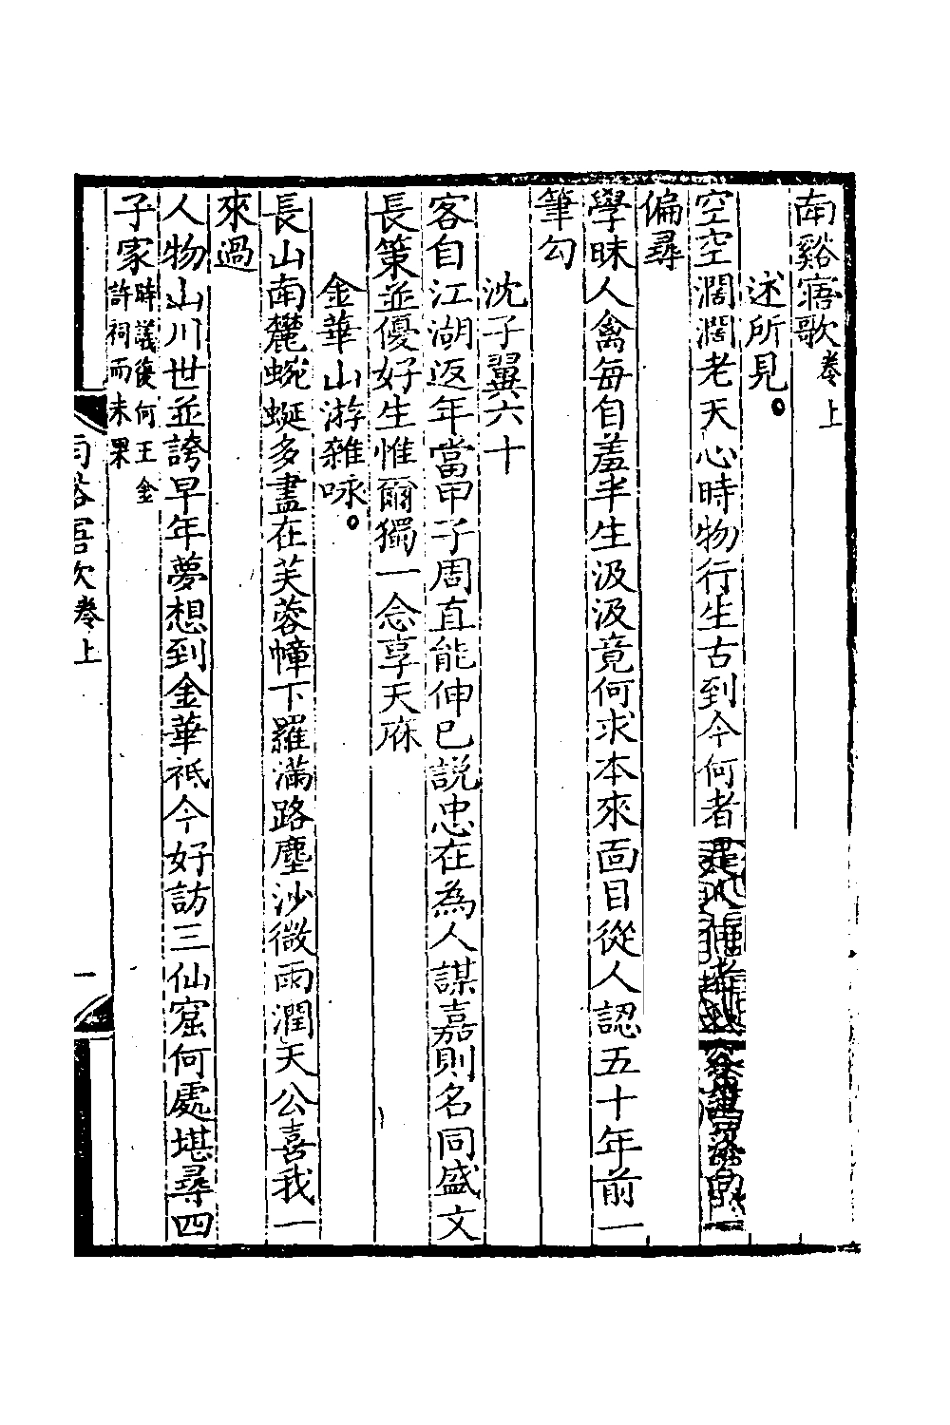 南谿寤歌卷上
述所見。
空空濶濶老天心時物行生古到今何者
偏尋
學昧人禽每自羞半生汲汲竟何求本來面目從人認五十年前一
筆勾
沈子翼六十
客自江湖返年當甲子周直能伸已說忠在為人謀嘉則名同盛文
長策並優好生惟爾獨一念享天庥
金華山游雜咏。
長山南麓蜿蜒多盡在芙蓉幛下羅滿路塵沙微雨潤天公喜我一
來過
人物山川世並誇早年夢想到金華祗今好訪三仙窟何處堪尋四
子家時議復何王金
許祠而未果
南谿寤歌卷上 一